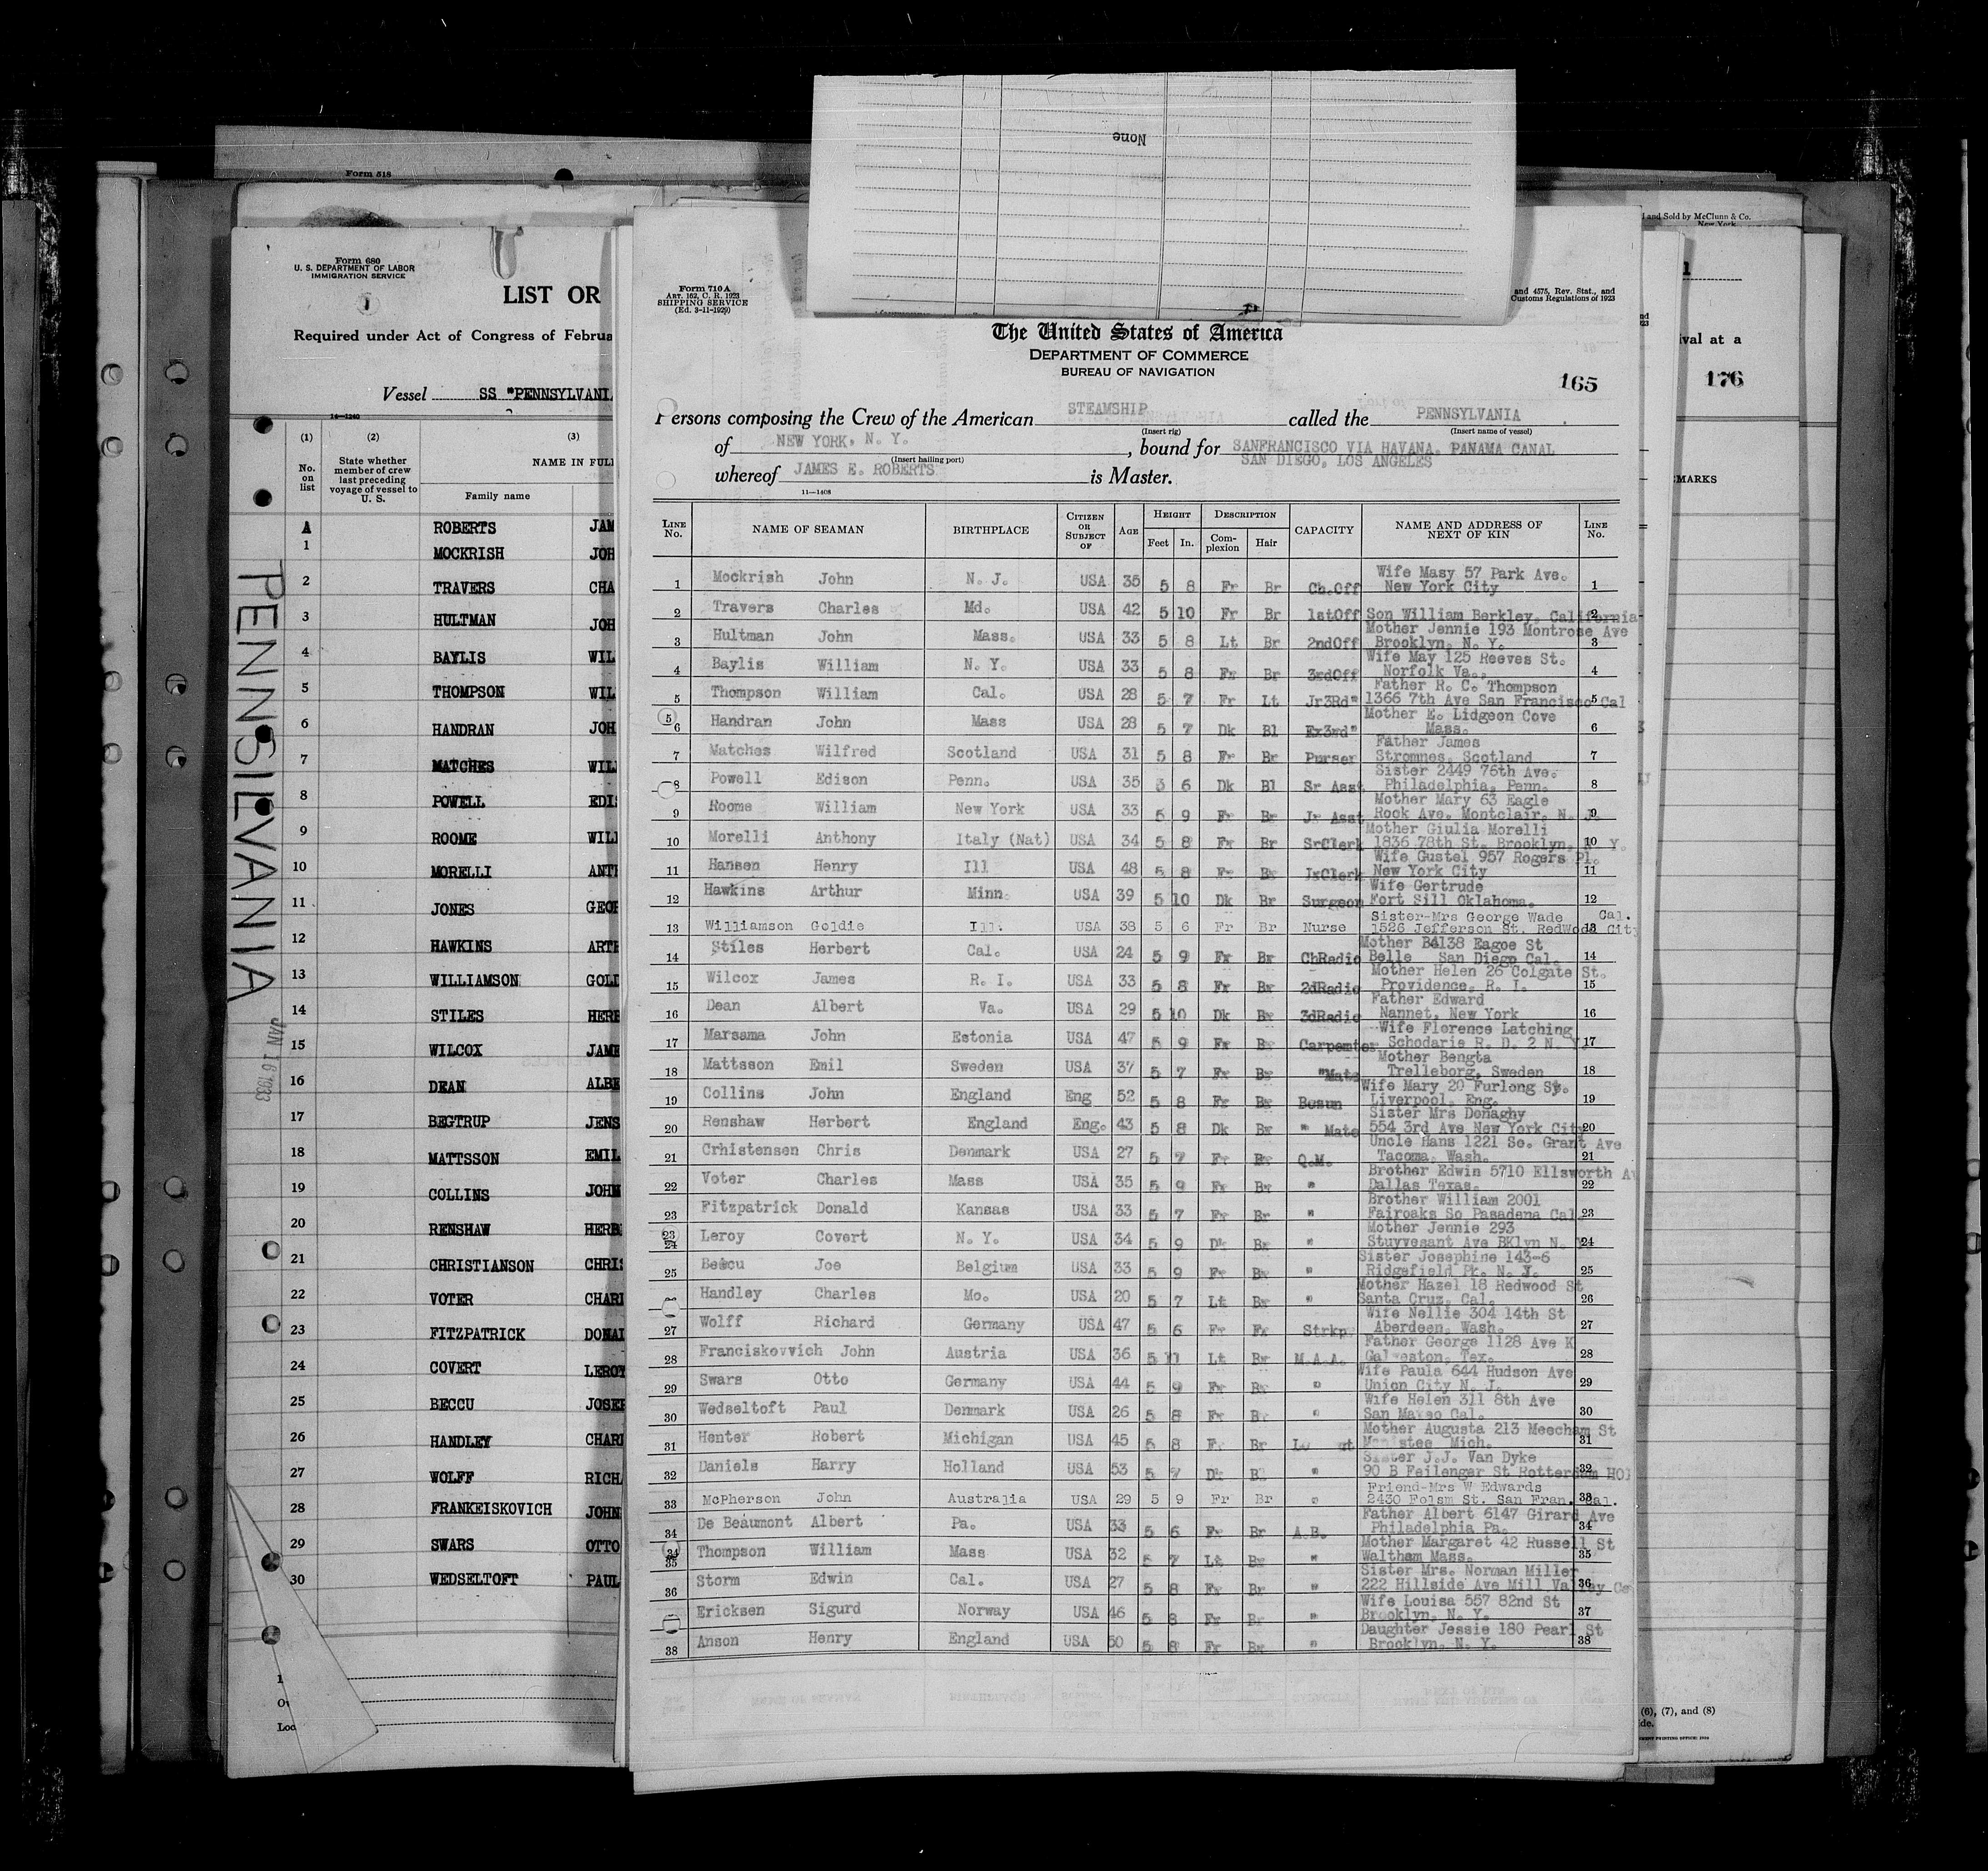 None
Form 518
l and Sold by McClunn & Co.
New York
Form 680
U. S. DEPARTMENT OF LABOR
IMMIGRATION SERVICE
LIST OR
Required under Act of Congress of Februa
Vessel SS "PENNSYLVANIA
16—1240
(1) (2) (3)
No. on list
State whether member of crew last preceding voyage of vessel to U. S.
NAME IN FULL
Family name
A ROBERTS JAM
1 MOCKRISH JOH
2 TRAVERS CHA
3 HULTMAN JOH
4 BAYLIS WIL
5 THOMPSON WIL
6 HANDRAN JOH
7 MATCHES WIL
8 POWELL EDI
9 ROOME WILI
10 MORELLI ANTH
11 JONES GEOR
12 HAWKINS ARTH
13 WILLIAMSON GOLD
14 STILES HERB
15 WILCOX JAME
16 DEAN ALBE
17 BEGTRUP JENS
18 MATTSSON EMIL
19 COLLINS JOHN
20 RENSHAW HERB
21 CHRISTIANSON CHRI
22 VOTER CHARL
23 FITZPATRICK DONAL
24 COVERT LEROY
25 BECCU JOSEP
26 HANDLEY CHARL
27 WOLFF RICHA
28 FRANKEISKOVICH JOHN
29 SWARS OTTO
30 WEDSELTOFT PAUL
PENNSILVANIA
JAN 16 1933
Form 710 A
ART. 162, C. R. 1923
SHIPPING SERVICE
(Ed. 3-11-1929)
and 4575, Rev. Stat., and
Customs Regulations of 1923
The United States of America
DEPARTMENT OF COMMERCE
BUREAU OF NAVIGATION
165
Persons composing the Crew of the American STEAMSHIP called the PENNSYLVANIA
(Insert rig) (Insert name of vessel)
of NEW YORK, N. Y., bound for SANFRANCISCO VIA HAVANA, PANAMA CANAL
(Insert hailing port) SAN DIEGO, LOS ANGELES
whereof JAMES E. ROBERTS is Master.
11—1408
LINE No. NAME OF SEAMAN BIRTHPLACE CITIZEN OR SUBJECT OF AGE HEIGHT Feet In. DESCRIPTION Complexion Hair CAPACITY NAME AND ADDRESS OF NEXT OF KIN LINE No.
1 Mockrish John N. J. USA 35 5 8 Fr Br Ch.Off Wife Masy 57 Park Ave. New York City 1
2 Travers Charles Md. USA 42 5 10 Fr Br 1stOff Son William Berkley, California 2
3 Hultman John Mass. USA 33 5 8 Lt Br 2ndOff Mother Jennie 193 Montrose Ave Brooklyn, N. Y. 3
4 Baylis William N. Y. USA 33 5 8 Fr Br 3rdOff Wife May 125 Reeves St. Norfolk Va., 4
5 Thompson William Cal. USA 28 5 7 Fr Lt Jr3Rd" Father R. C. Thompson 1366 7th Ave San Francisco Cal 5
6 Handran John Mass USA 28 5 7 Dk Bl Ex3rd" Mother E. Lidgeon Cove Mass. 6
7 Matches Wilfred Scotland USA 31 5 8 Fr Br Purser Father James Stromnes, Scotland 7
8 Powell Edison Penn. USA 35 5 6 Dk Bl Sr Asst Sister 2449 76th Ave. Philadelphia, Penn. 8
9 Roome William New York USA 33 5 9 Fr Br Jr Asst Mother Mary 63 Eagle Rock Ave. Montclair, N. J. 9
10 Morelli Anthony Italy (Nat) USA 34 5 8 Fr Br SrClerk Mother Giulia Morelli 1836 78th St. Brooklyn, N. Y. 10
11 Hansen Henry Ill USA 48 5 8 Fr Br JrClerk Wife Gustel 957 Rogers Pl. New York City 11
12 Hawkins Arthur Minn. USA 39 5 10 Dk Br Surgeon Wife Gertrude Fort Sill Oklahoma. 12
13 Williamson Goldie Ill. USA 38 5 6 Fr Br Nurse Sister-Mrs George Wade 1526 Jefferson St. Redwood City Cal. 13
14 Stiles Herbert Cal. USA 24 5 9 Fr Br ChRadio Mother B4138 Eagoe St Belle San Diego Cal. 14
15 Wilcox James R. I. USA 33 5 8 Fr Br 2dRadio Mother Helen 26 Colgate St. Providence, R. I. 15
16 Dean Albert Va. USA 29 5 10 Dk Br 3dRadio Father Edward Nannet, New York 16
17 Marsama John Estonia USA 47 5 9 Fr Br Carpemter Wife Florence Latching Schodarie R. D. 2 N. Y. 17
18 Mattsson Emil Sweden USA 37 5 7 Fr Br "Mate Mother Bengta Trelleborg, Sweden 18
19 Collins John England Eng 52 5 8 Fr Br Bosun Wife Mary 20 Furlong St. Liverpool, Eng. 19
20 Renshaw Herbert England Eng. 43 5 8 Dk Br " Mate Sister Mrs Donaghy 554 3rd Ave New York City 20
21 Crhistensen Chris Denmark USA 27 5 7 Fr Br Q.M. Uncle Hans 1221 So. Grant Ave Tacoma, Wash. 21
22 Voter Charles Mass USA 35 5 9 Fr Br " Brother Edwin 5710 Ellsworth Av Dallas Texas. 22
23 Fitzpatrick Donald Kansas USA 33 5 7 Fr Br " Brother William 2001 Fairoaks So Pasadena Cal 23
24 Leroy Covert N. Y. USA 34 5 9 Dk Br " Mother Jennie 293 Stuyvesant Ave BKlyn N. Y. 24
25 Beccu Joe Belgium USA 33 5 9 Fr Br " Sister Josephine 143-6 Ridgefield Pk. N. J. 25
Handley Charles Mo. USA 20 5 7 Lt Br " Mother Hazel 18 Redwood St Santa Cruz, Cal. 26
27 Wolff Richard Germany USA 47 5 6 Fr Fr Strkp. Wife Nellie 304 14th St Aberdeen, Wash. 27
28 Franciskovvich John Austria USA 36 5 11 Lt Br M.A.A. Father George 1128 Ave K Galveston, Tex. 28
29 Swars Otto Germany USA 44 5 9 Fr Br " Wife Paula 644 Hudson Ave Union City N. J. 29
30 Wedseltoft Paul Denmark USA 26 5 8 Fr Br " Wife Helen 311 8th Ave San Mateo Cal. 30
31 Henter Robert Michigan USA 45 5 8 F. Br Mother Augusta 213 Meecham St Manistee Mich. 31
32 Daniels Harry Holland USA 53 5 7 Dk Bl " Sister J.J. Van Dyke 90 B Feilengar St Rotterdam HOl 32
33 McPherson John Australia USA 29 5 9 Fr Br " Friend-Mrs W Edwards 2430 Folsm St. San Fran. Cal. 33
34 De Beaumont Albert Pa. USA 33 5 6 Fr Br A.B. Father Albert 6147 Girard Ave Philadelphia Pa. 34
35 Thompson William Mass USA 32 5 7 Lt Br " Mother Margaret 42 Russell St Waltham Mass. 35
36 Storm Edwin Cal. USA 27 5 8 Fr Br " Sister Mrs. Norman Miller 222 Hillside Ave Mill Valley Ca 36
Ericksen Sigurd Norway USA 46 5 8 Fr Br " Wife Louisa 557 82nd St Brooklyn, N. Y. 37
38 Anson Henry England USA 50 5 8 Fr Br " Daughter Jessie 180 Pearl St Brooklyn, N. Y. 38
ival at a
176
MARKS
(6), (7), and (8)
ide.